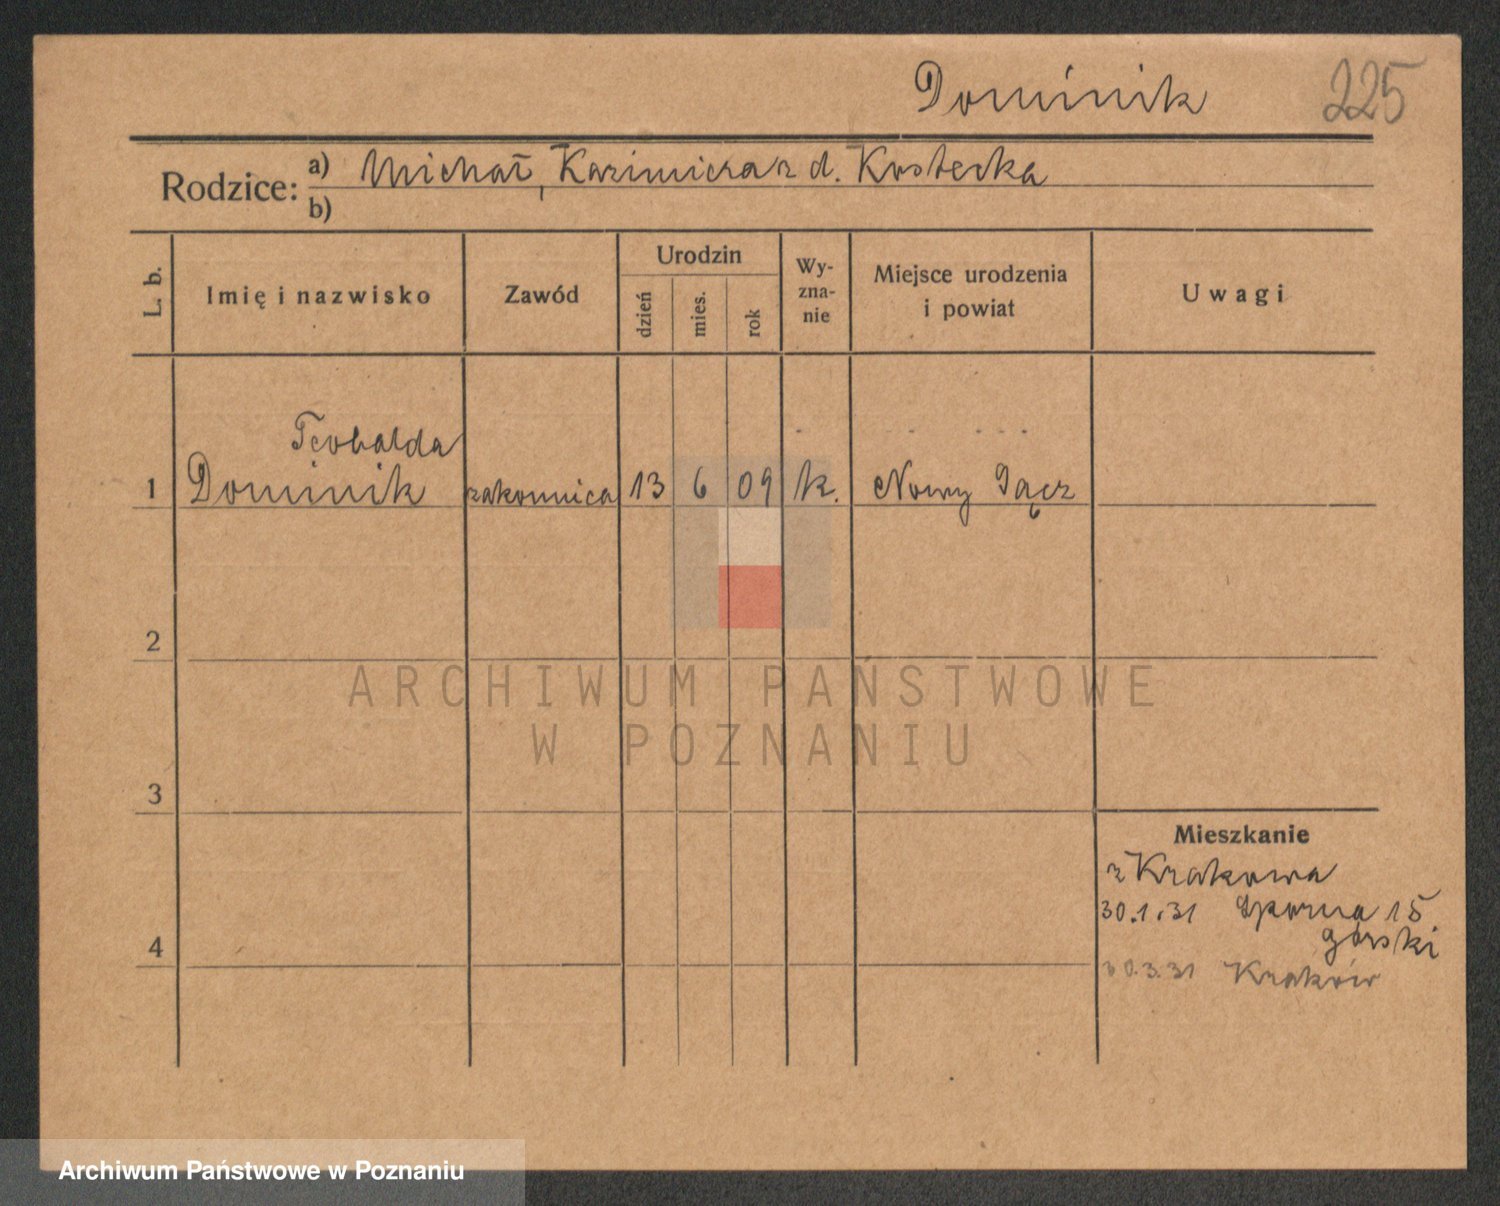 Dominik 225
Rodzice: a) Michał, Kazimiera z d. Kostecka
b)
L. b.
Imię i nazwisko
Zawód
Urodzin
dzień
mies.
rok
Wy-
zna-
nie
Miejsce urodzenia
i powiat
Uwagi
Teobalda
1 Dominik zakonnica 13 6 09 k. Nowy Sącz
2
ARCHIWUM PAŃSTWOWE
W POZNANIU
3
Mieszkanie
z Krakowa
30.1.31 Sporna 15
Górski
4
30.3.31 Kraków
Archiwum Państwowe w Poznaniu